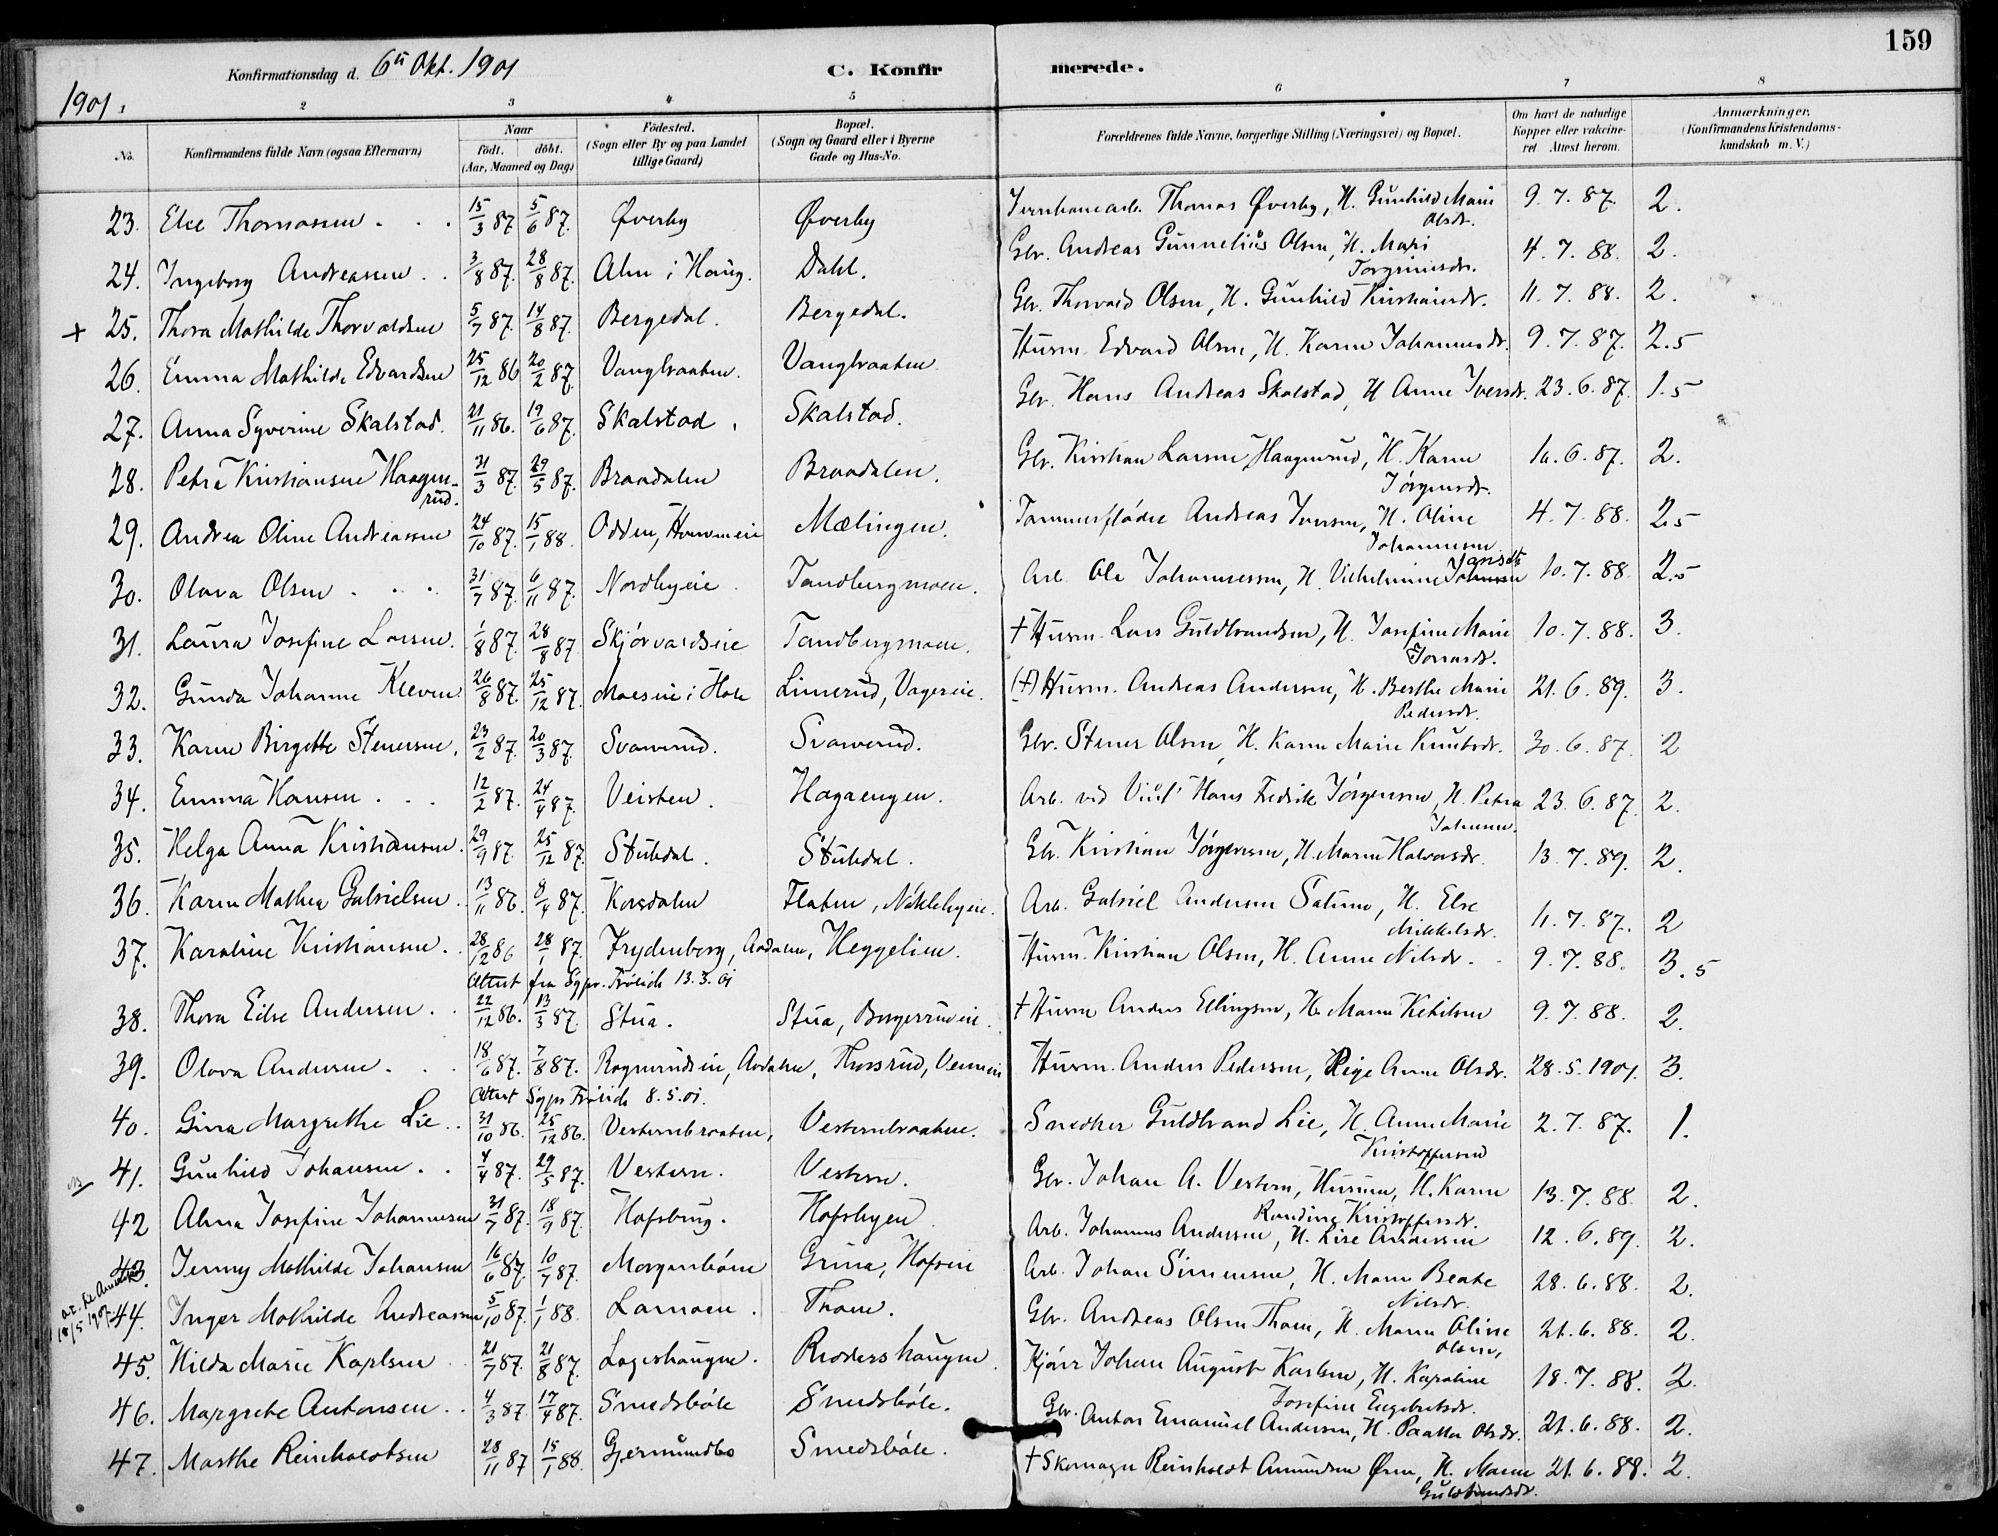 159
Konfirmationsdag d. 6te Okt. 1901
C. Konfirmerede.
1901.
1 2 3 4 5 6 7 8
No. Konfirmandens fulde Navn (ogsaa Efternavn) Naar født. døbt. (Aar, Maaned og Dag) Fødested. (Sogn eller By og paa Landet tillige Gaard) Bopæl. (Sogn og Gaard eller i Byerne Gade og Hus-No. Forældrenes fulde Navne, borgerlige Stilling (Næringsvei) og Bopæl. Om havt de naturlige Kopper eller vakcineret Attest herom. Anmærkninger. (Konfirmandens Kristendomskundskab m. V.)
23. Else Thomassen 15/3 87 5/6 87. Øverby Øverby Jernbanearb. Thomas Øverby, H. Gunhild Marie Olsdr. 9. 7. 87. 2.
24. Ingeborg Andreassen 3/8 87. 28/8 87. Alm i Haug. Dahl. Gbr. Andreas Gunnelius Olsen, H. Mari Torgrimsdr. 4. 7. 88. 2.
+ 25. Thora Mathilde Thorvaldsen 5/7 87. 14/8 87. Bergedal. Bergedal. Gbr. Thorvald Olsen, H. Gunhild Kristiansdr. 11. 7. 88. 2.
26. Emma Mathilde Edvardsen 25/12 86 20/2 87. Vangbraaten. Vangbraaten Husm. Edvard Olsen, H. Karen Johannesdr. 9. 7. 87. 2.5
27. Anna Syverine Skalstad. 21/11 86. 19/6 87. Skalstad. Skalstad. Gbr. Hans Andreas Skalstad, H Anne Iversdr. 23. 6. 87. 1.5
28. Petra Kristiansen Haagenrud. 31/3 87. 29/5 87. Braadalen Braadalen. Gbr. Kristian Larsen Haagenrud, H. Karen Jørgensdr. 10. 6. 87. 2.
29. Andrea Oline Andreassen 24/10 87. 15/1 88. Odden, Mælingen. Tømmerfløder Andreas Iversen, H. Oline Johannesen 4. 7. 88. 2.5
30. Olava Olsen 31/7 87. 6/11 87. Nordbyeie Tandbergmoen. Arb. Ole Johannessen, H. Vilhelmine Johansen Jansdtr 10. 7. 88. 2.5
31. Laura Josefine Larsen. 1/8 87. 28/8 87 Skjørvaldseie Tandbergmoen. † Husm. Lars Guldbrandsen, H. Josefine Marie Jonasdr. 10. 7. 88. 3.
32. Gunda Johanne Kleven 26/8 87. 25/12 87. Moeseie i Hole Limerud, Vagereie. (†) Husm. Andreas Andersen, H. Berthe Marie Pedersdr. 21. 6. 89. 3.
33. Karen Birgitte Stenersen. 23/2 87. 20/3 87. Svarverud. Svarverud. Gbr. Stener Olsen, H. Karen Marie Knutsdr. 30. 6. 87. 2
34. Emma Hansen 12/2 87. 24/4 87. Veisten. Hagaengen. Arb. ved Viul Hans Fredrik Jørgensen, H. Petra Johansen. 23. 6. 87. 2.
35. Helga Anna Kristiansen. 29/9 87. 25/12 87. Stubdal. Stubdal. Gbr. Kristian Jørgensen, H. Maren Halvorsdr. 13. 7. 89. 2.
36. Karen Mathea Gabrielsen. 13/11 86. 8/4 87. Korsdalen Flaten, Nøklebyeie. Arb. Gabriel Andersen Saturn, H. Else Mikkelsdr. 11. 7. 87. 2
37. Karoline Kristiansen 28/12 86 28/1 87. Frydenberg, Aadalen, Heggelien. Husm. Kristian Olsen, H. Anne Nilsdr. 9. 7. 88. 3.5
Attest fra Sgpr. Frölich 13.3.01
38. Thora Eilse Andersen 22/12 86. 13/3 87. Stua. Stua, Borgerrudeie. † Husm Anders Ellingsen, H. Maren Ketilsen 9. 7. 88. 2.
39. Olava Andersen 18/6 87. 7/8 87. Rognerudseie, Aadalen, Thorsrud, Husm. Anders Pedersen, Pige Anne Olsdr. 28. 5. 1901. 3.
Attest Sgpr Frölich 8.5.01.
40. Gina Margrethe Lie 31/10 86. 25/12 86. Vesternbraaten, Vesternbraaten. Snedker Guldbrand Lie, H. Anne Marie Kristoffersen 2. 7. 87. 1.
NB 41. Gunhild Johansen 4/4 87. 29/5 87. Vestern. Vestern. Gbr. Johan A. Vestern, Husmor, H. Karen Randine Kristoffersdr. 13. 7. 88. 2.
42 Alma Josefine Johannesen 31/7 87. 18/9 87. Hofsbrug. Hofsbyen Arb. Johannes Andersen, H. Lise Andersen 12. 6. 89. 2.
43. Jenny Mathilde Johansen 16/6 87. 10/7 87. Morganbøen Grina, Hofseie Arb. Johan Simensen, H. Maren Beate Nilsdr. 28. 6. 88. 2.
18/5 1907. 44. Inger Mathilde Andreassen 5/10 87. 1/1 88. Larmoen. Thoen. Gbr. Andreas Olsen Thoen, H. Maren Oline Olsen, 21. 6. 88. 2.
45. Hilda Marie Karlsen 21/7 87. 21/8 87. Lageshaugen. Rødershaugen Kjører Johan August Karlsen, H. Karoline Josefine Engebretsdr. 18. 7. 88. 2.
46. Margrete Antonsen 4/3 87. 17/4 87. Smedsbøle Smedsbøle. Gbr. Anton Emanuel Andersen, H. Olsdr. 21. 6. 88. 2.
47. Marthe Reinholdtsen 28/11 87 15/1 88. Gjermundbo Smedsbøle. † Skomager Reinholdt Amundsen Øren, H. Maren Guldbrandsdr. 21. 6. 88. 2.